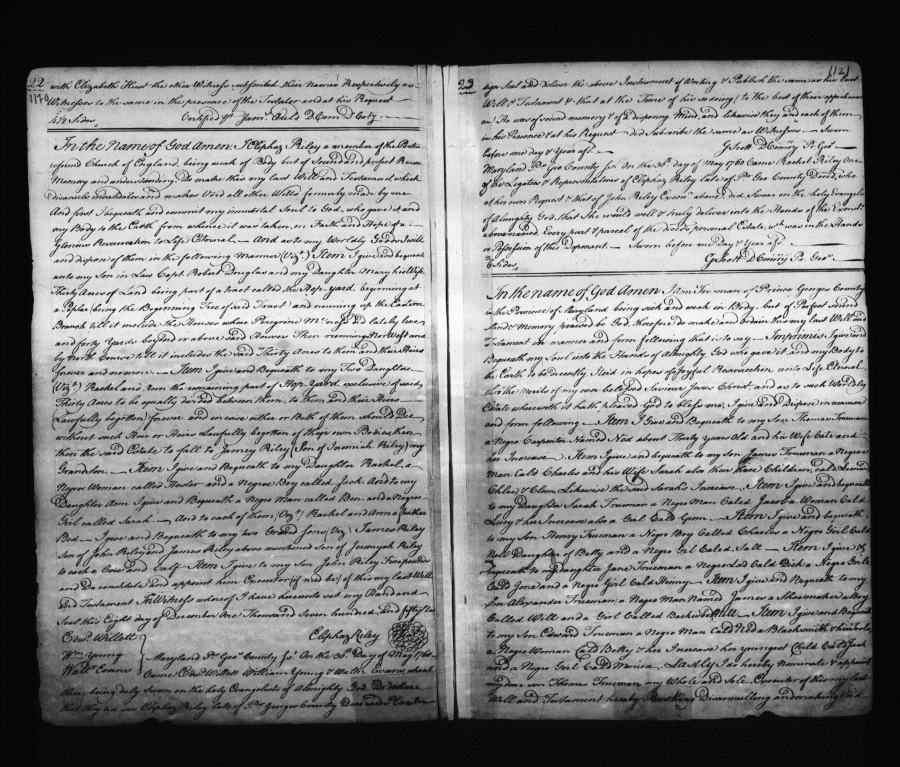 22
1170
with Elizabeth Hunt the other Witness subscribed their Names Respectively as
Witnesses to the same in the presence of the Testator and at his Request
4½ Sides Certified
In the Name of God Amen. I Eliphaz Riley a member of the
reformed Church of England, being weak of Body but of Sound and perfect
Memory and understanding Do make this my last Will and Testament which
disannuls invalidates and makes Void all other Wills formerly made by me
And first I bequeath and commit my immortal Soul to God, who gave it and
my Body to the Earth from whence it was taken, in Faith and Hope of a
Glorious Resurrection to Life Eternal. And as to my Worldly Goods I will
and dispose of them in the following Manner (Viz.) Item I give and bequeath
unto my Son in Law Capt. Robert Douglas and my Daughter Mary his Wife
Thirty Acres of Land being part of a tract called the Hop Yard, beginning at
a Poplar being the Beginning Tree of said Tract and running up the Eastern
Branch till it include the Houses where Peregrine did lately live
and forty Yards beyond or above said Houses Then running Nor West and
by north Course till it includes the said Thirty Acres to them and their Heirs
forever and no more. Item I give and Bequeath to my Two Daughters
(Viz.) Rachel and Ann the remaining part of Hop Yard exclusive of said
Thirty Acres to be equally divided between them, to them and their Heirs
(Lawfully begotten) forever and in case either or Both of them should Die
without such Heir or Heirs Lawfully begotten of their own Bodies, then
then the said Estate to fall to James Riley (Son of Jeremiah Riley) my
Grandson. Item I give and Bequeath to my Daughter Rachel a
Negroe Woman called Hester and a Negroe Boy called Jack. And to my
Daughter Ann I give and Bequeath a Negro Man called Ben and a Negroe
Girl called Sarah. And to each of them (Viz.) Rachel and Ann a feather
Bed. I give and Bequeath to my two Grand Sons (Viz.) James Riley
Son of John Riley and James Riley above mentioned Son of Jeremiah Riley
to each a Cow and Calf. Item I give to my Son John Riley Five pounds
and Do constitute and appoint him Executor (if need be) of this my last Will
and Testament In Witness whereof I have hereunto set my Hand and
Seal this Eight day of December One Thousand Seven hundred and fifty
Edwd. Willett Eliphaz Riley
Wm. Young
Maryland Pr. Geo. County On the 30th. Day of May 1760
Came Edwd. Willett William Young &
then being duly Sworn on the holy Evangelists of Almighty God Do declare
that they did see Eliphaz Riley late of Pr. Georges County Deceased
23
(12)
sign Seal and deliver the above Instrument of Writing & Publish the same as his last
Will & Testament & that at the Time of his so doing (to the best of their apprehension
He was of sound memory & of a disposing Mind, and likewise they and each of them
in his Presence & at his Request did Subscribe the same as Witnesses. Sworn
before me day & Year afd. G Scott D Comry. Pr. Geo.
Maryland Pr. Geo County On the 30th. day of May 1760 Came Rachel Riley One
of the Legatees & Representatives of Eliphaz Riley late of Pr. Geo County Deced, who
at her own Request & that of John Riley Execr. above did Swear on the holy Evangels
of Almighty God, that She would well & truly deliver into the Hands of the Execr.
above named Every part & parcel of the deceds personal Estate, wch. was in the Hands
or Possession of this Deponent. Sworn before me Day & Year afd.
6 Sides G Scott D Comry. Pr. Geo.
In the name of God Amen I Trueman of Prince Georges County
in the Province of Maryland being sick and weak in Body, but of Perfect Sound
Mind & Memory, praised be God, therefore do make and Ordain this my last Will and
Testament in manner and form following that is to say. Imprimis I give and
Bequeath my Soul into the Hands of Almighty God who gave it, and my Body to
the Earth to be decently Laid in hopes of a Joyful Resurrection unto Life Eternal
thro the merits of my ever beloved Saviour Jesus Christ, and as to such Worldly
Estate wherewith it hath pleased God to bless me, I give and Dispose in manner
and form following. Item I Give and Bequeath to my Son Thomas Trueman
a Negro Carpenter Named Ned about Thirty Years Old and his Wife Cate and
her Increase. Item I give and bequeath to my son James Trueman a Negroe
Man Cald Charles and his Wife Sarah also their three Children, Cald
Chloe & Clem, Likewise the said Sarah's Increase. Item I give and bequeath
to my Daughter Sarah Trueman a Negro Man Caled Jacob a Woman Cald
Lucy & her Increase also a Girl Cald Genn. Item I give and bequeath
to my Son Henry Trueman a Negro Boy Called Charles a Negro Girl Cald
Nell Daughter of Betty and a Negro Girl Caled Sall. Item I give &
bequeath to my Daughter Jane Trueman a Negro Lad Cald Dick a Negro Girl
Cald Jone and a Negro Girl Cald Henny. Item I give and Bequeath to my
Son Alexander Trueman, a Negro Man Named James a Shoemaker a Boy
Called Will and a Girl Called Nell. Item I give and Bequeath
to my Son, Edward Trueman a Negro Man Cald Ned a Blacksmith &
a Negro Woman Cald Betty & her Increase her youngest Child Cald Jack
and a Negro Girl Cald Lastly I do hereby Nominate & appoint
my son Thomas Trueman my Whole and Sole Executor of this my last
Will and Testament hereby Revoking Disannulling and making Void